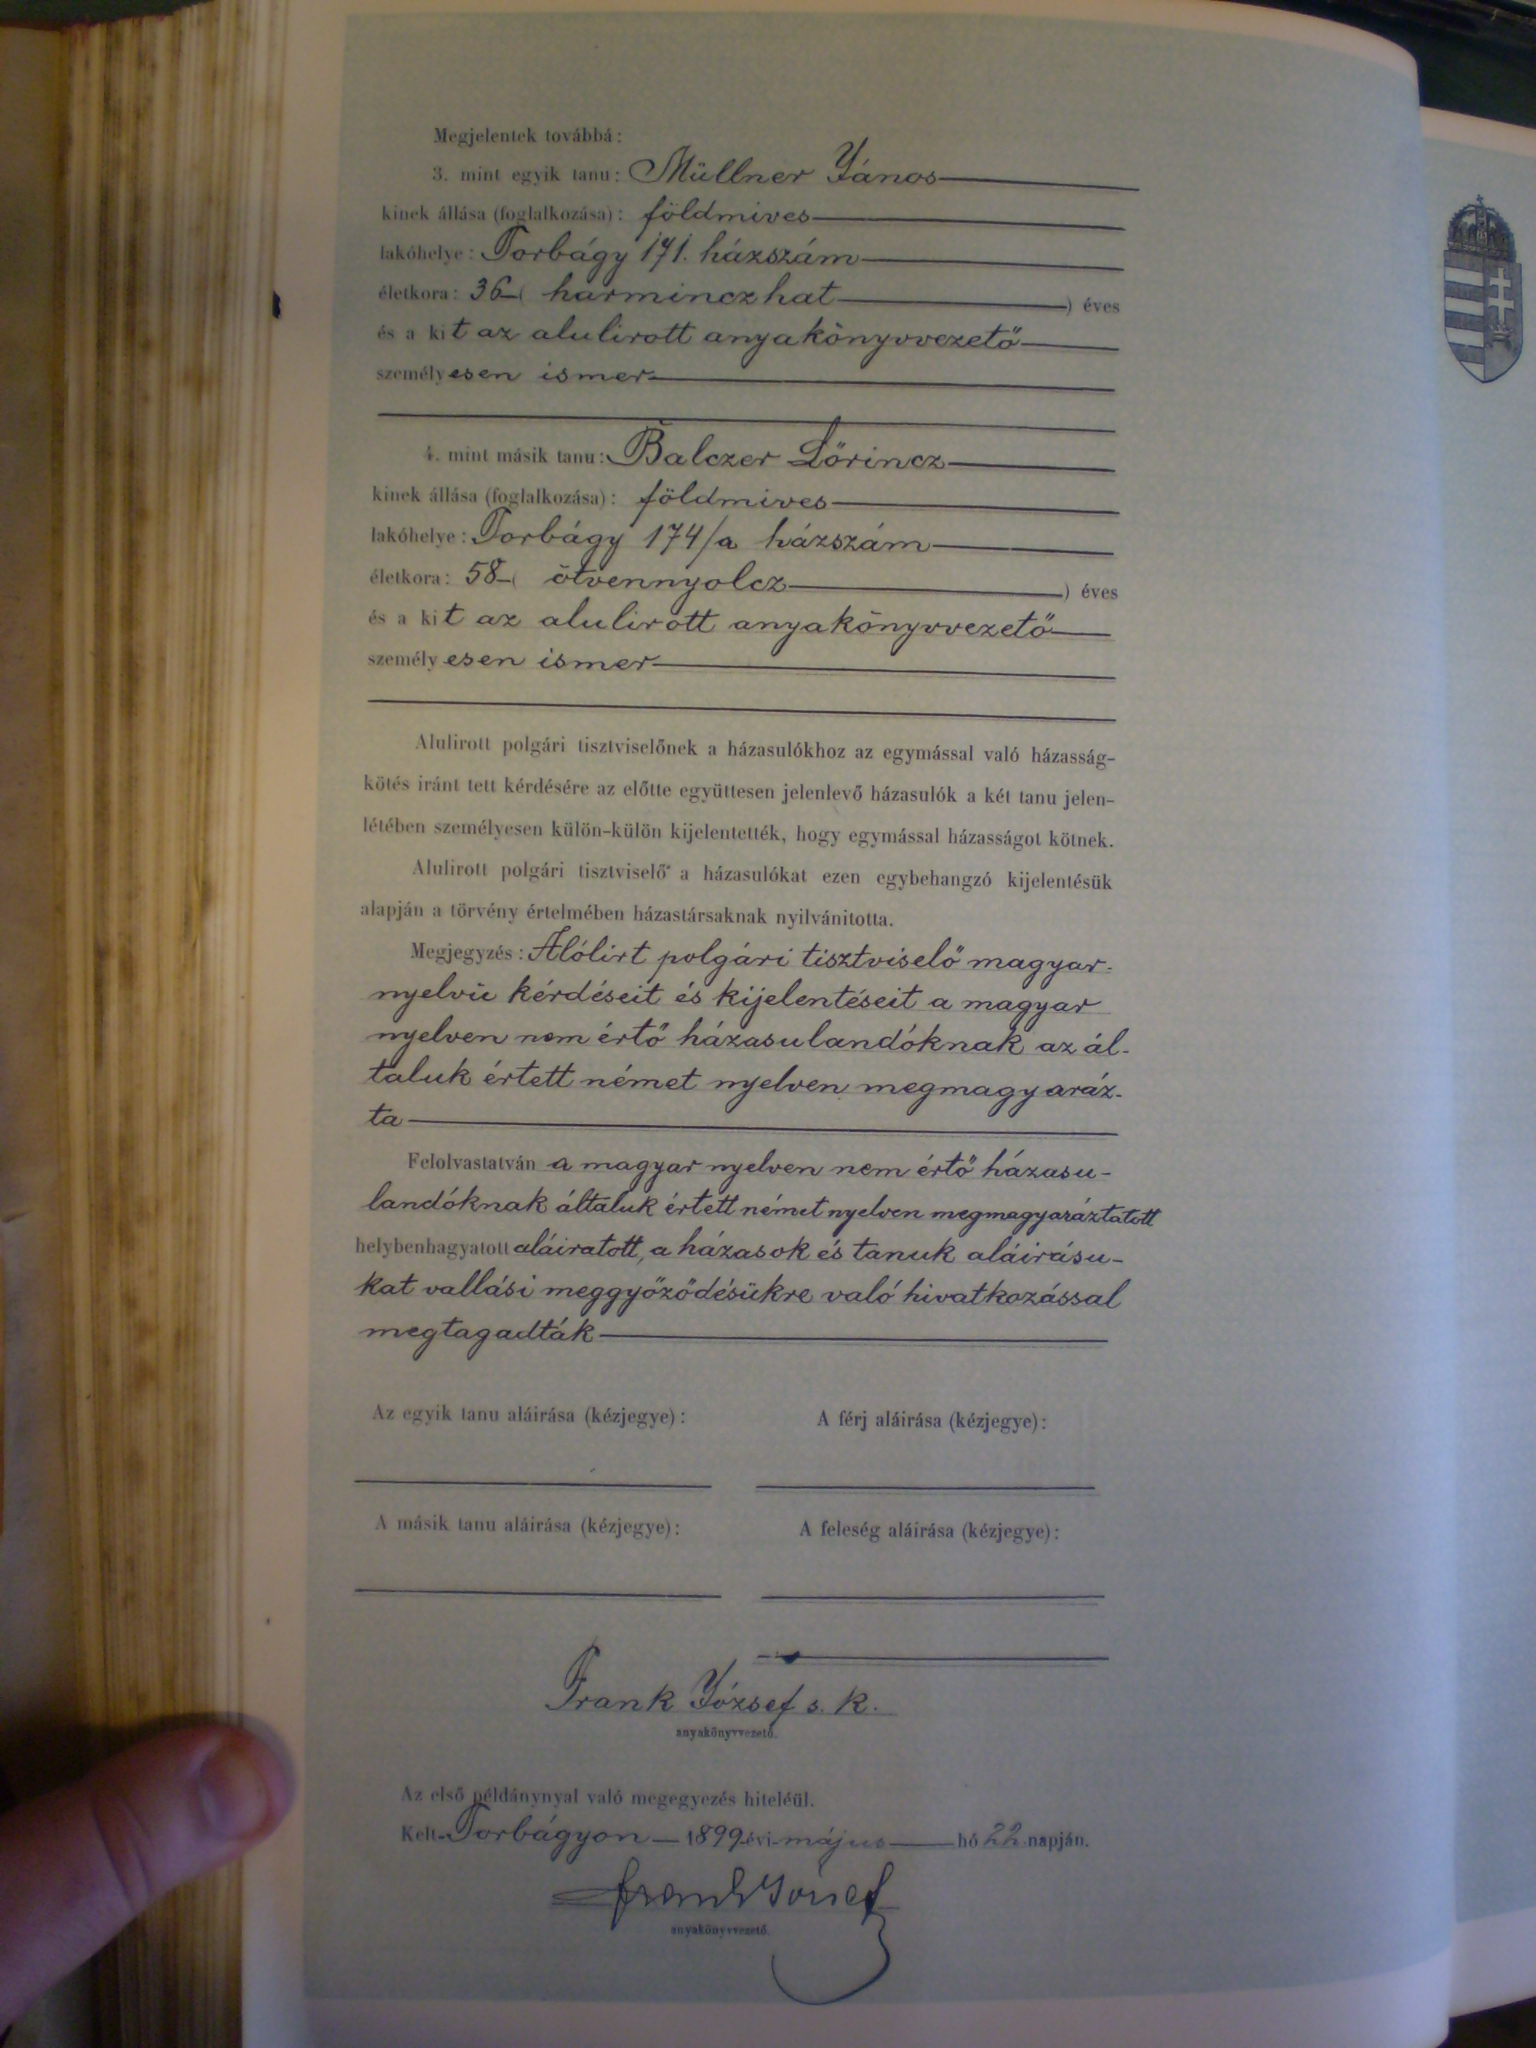 Megjelentek továbbá:
3. mint egyik tanu: Müllner János
kinek állása (foglalkozása): földmives
lakóhelye: Torbágy 171. házszám
életkora: 36 ( harminczhat ) éves
és a kit az alulirott anyakönyvvezető
személyesen ismer
4. mint másik tanu: Balczer Lőrincz
kinek állása (foglalkozása): földmives
lakóhelye: Torbágy 174/a házszám
életkora: 58 ( ötvennyolcz ) éves
és a kit az alulirott anyakönyvvezető
személyesen ismer
Alulirott polgári tisztviselőnek a házasulókhoz az egymással való házasság-
kötés iránt tett kérdésére az előtte együttesen jelenlevő házasulók a két tanu jelen-
létében személyesen külön-külön kijelentették, hogy egymással házasságot kötnek.
Alulirott polgári tisztviselő a házasulókat ezen egybehangzó kijelentésük
alapján a törvény értelmében házastársaknak nyilvánitotta.
Megjegyzés: Alólirt polgári tisztviselő magyar-
nyelvü kérdéseit és kijelentéseit a magyar
nyelven nem értő házasulandóknak az ál-
taluk értett német nyelven megmagyaráz-
ta
Felolvastatván a magyar nyelven nem értő házasu-
landóknak általuk értett német nyelven megmagyaráztatott
helybenhagyatott aláiratott, a házasok és tanuk aláirásu-
kat vallási meggyőződésükre való hivatkozással
megtagadták
Az egyik tanu aláirása (kézjegye): A férj aláirása (kézjegye):
A másik tanu aláirása (kézjegye): A feleség aláirása (kézjegye):
Frank József s. k.
anyakönyvvezető.
Az első példánynyal való megegyezés hiteléül.
Kelt Torbágyon 1899 évi május hó 22 napján.
Frank József
anyakönyvvezető.